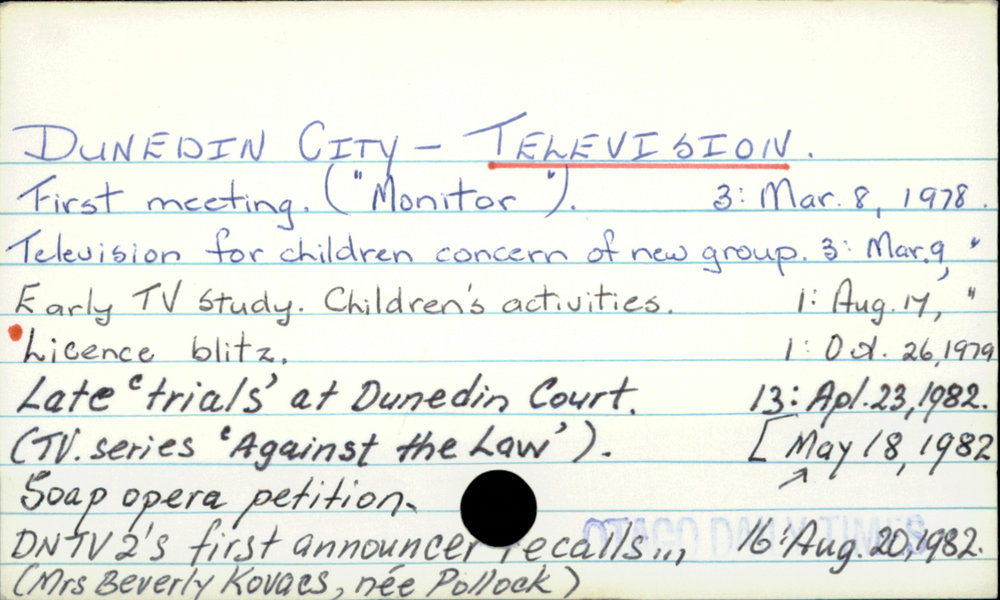 DUNEDIN CITY - TELEVISION.
First meeting. ("Monitor"). 3: Mar. 8, 1978.
Television for children concern of new group. 3: Mar. 9, "
Early TV study. Children's activities. 1: Aug. 14, "
Licence blitz. 1: Oct. 26, 1979
Late 'trials' at Dunedin Court. 13: Apl. 23, 1982.
(TV. series 'Against the Law'). [May 18, 1982
Soap opera petition.
OTAGO DAILY TIMES
DNTV2's first announcer recalls... 16: Aug. 20, 1982.
(Mrs Beverly Kovacs, née Pollock)